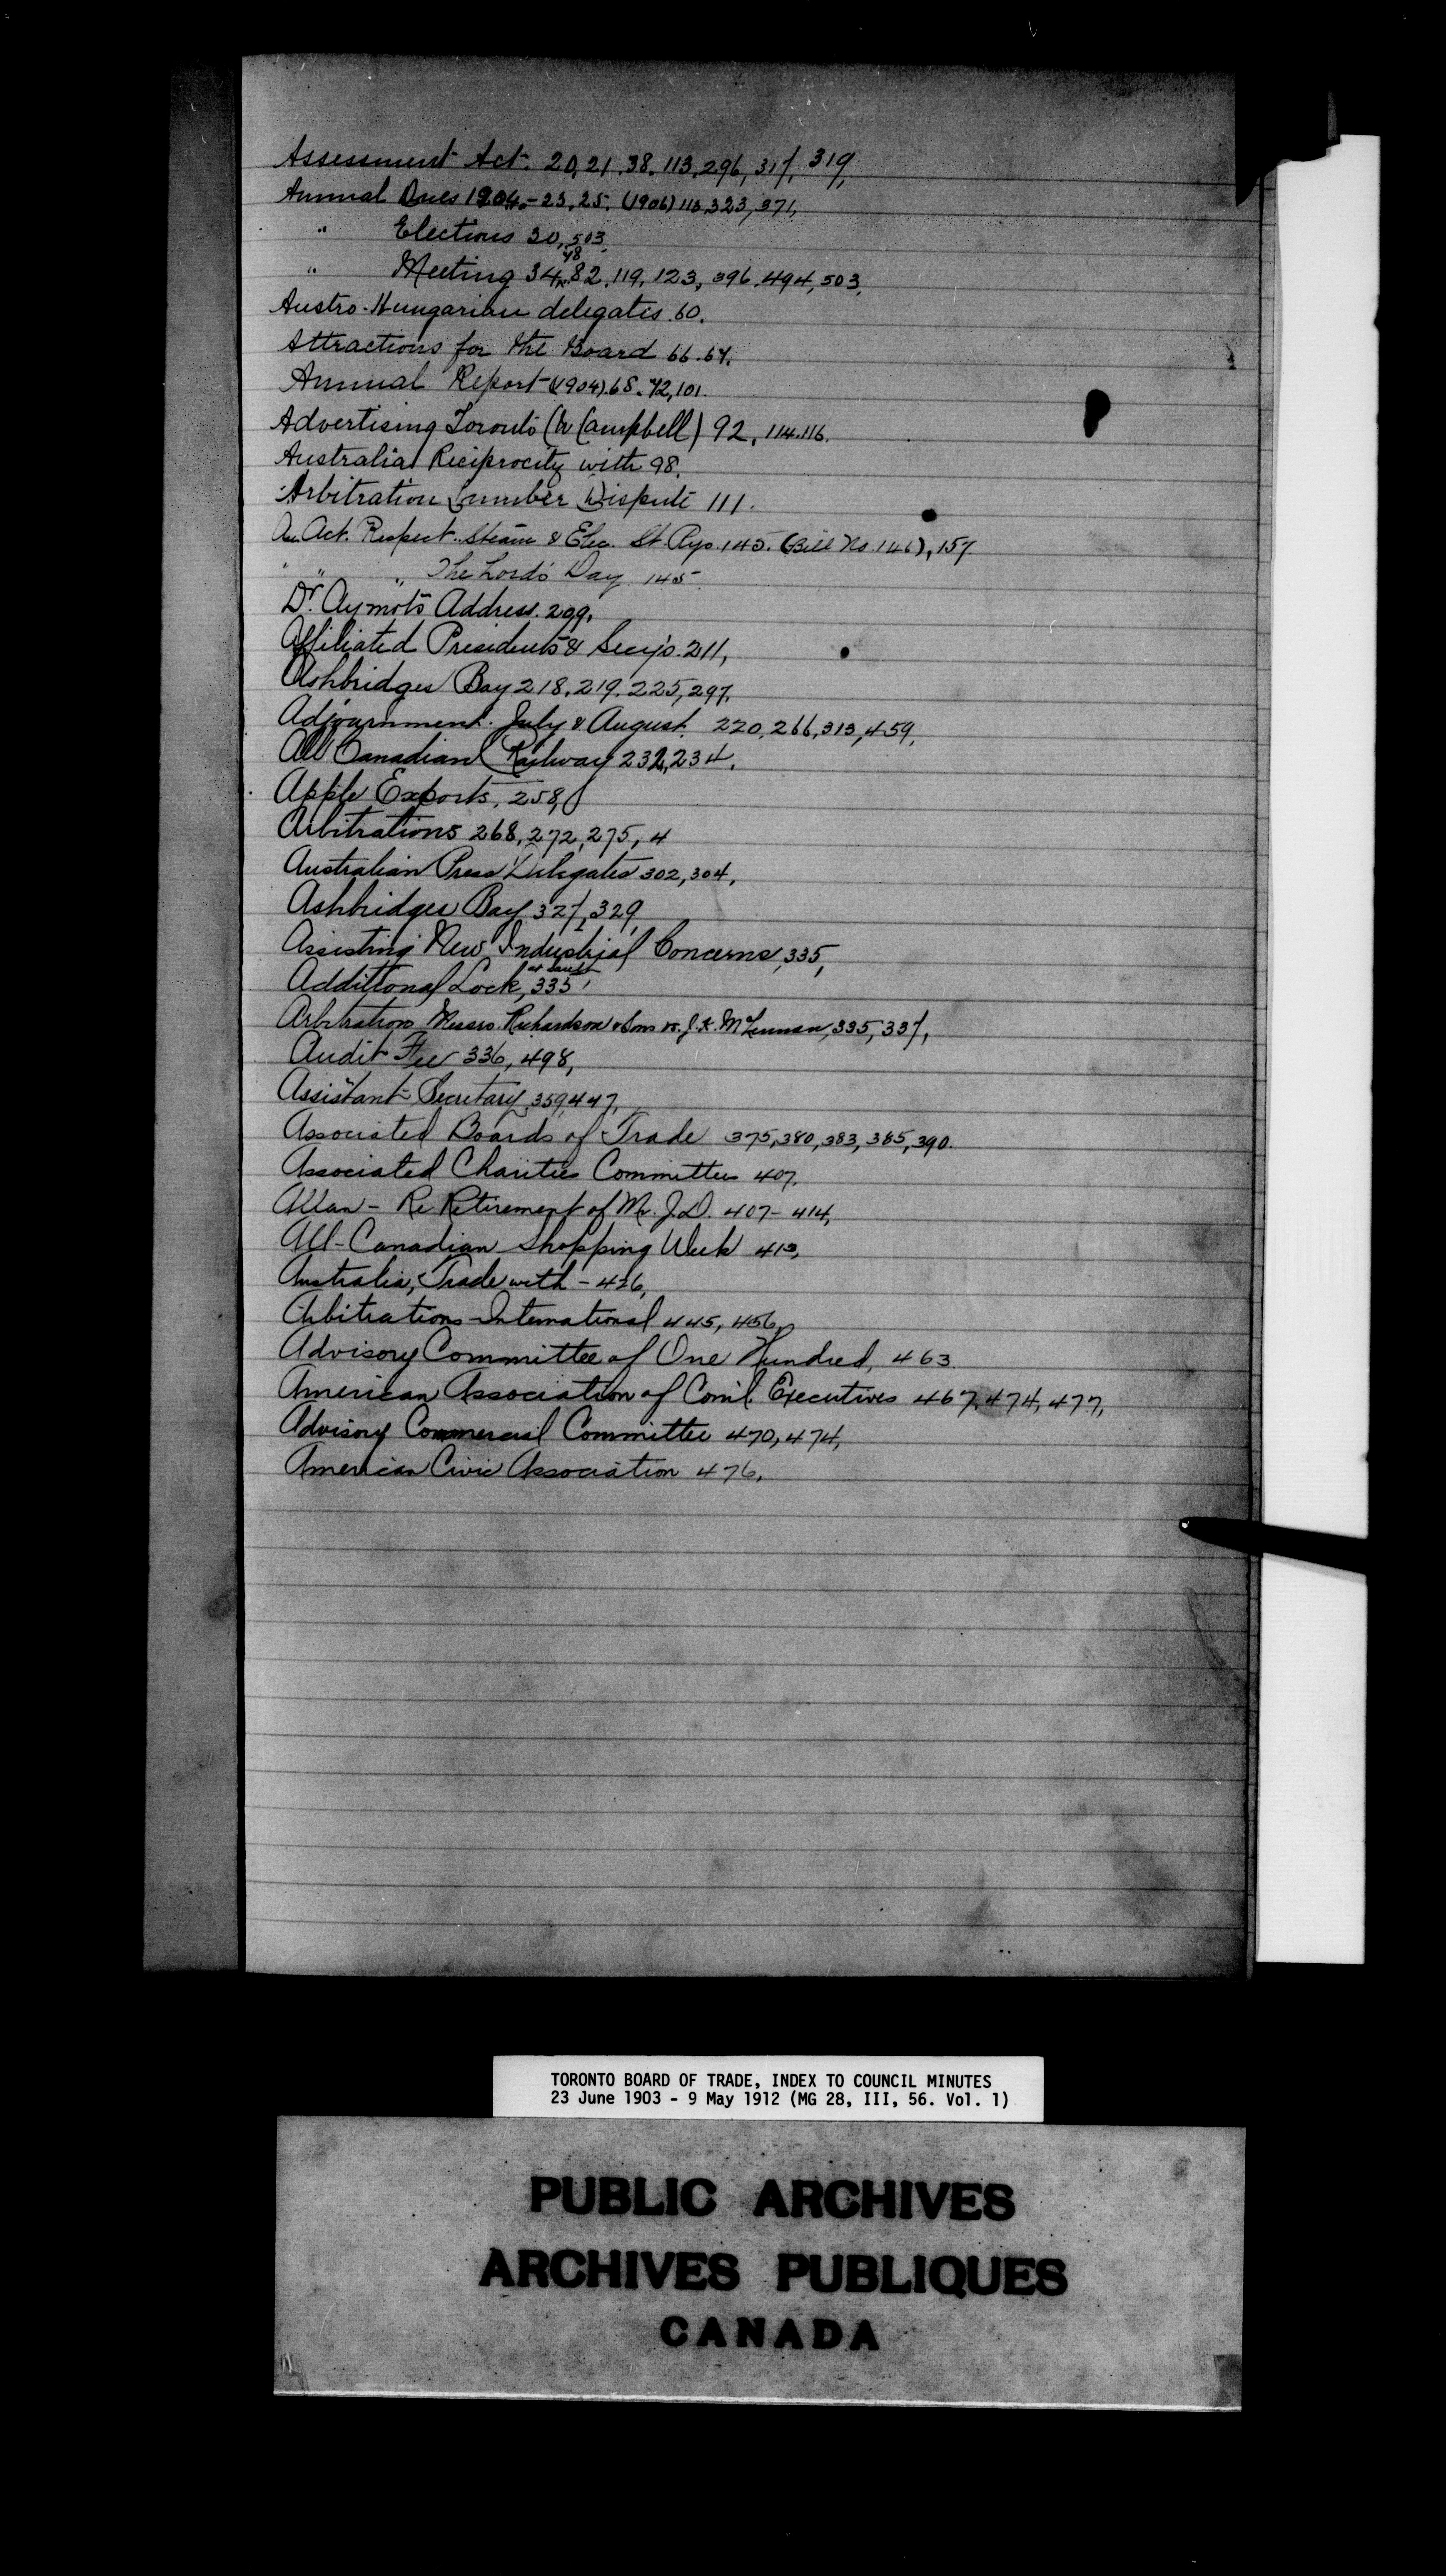 Assessment Act. 20, 21, 38, 113, 296, 317, 319,
Annual Dues 1904.- 23, 25. (1906) 113, 323, 371,
" Elections 30, 503,
48
" Meeting 34, 82, 119, 123, 396, 494, 503,
Austro-Hungarian delegates. 60.
Attractions for the Board 66. 67.
Annual Report (1904). 68. 72, 101.
Advertising Toronto (W Campbell) 92, 114. 116.
Australia Reciprocity with 98.
Arbitration Lumber Dispute 111.
An Act. Respect. Steam & Elec. St Rys. 145. (Bill No. 146), 157
" " " The Lord's Day 145
Dr. Aymot's Address. 209.
Affiliated Presidents & Secy's. 211,
Ashbridges Bay 218. 219. 225, 297.
Adjournment. July & August. 220. 266, 313, 459,
All Canadian Railway 232, 234.
Apple Exports, 258,
Arbitrations 268, 272, 275, 4
Australian Press Delegates 302, 304,
Ashbridges Bay 327, 329,
Assisting New Industrial Concerns, 335,
at Sault
Additional Lock, 335,
Arbitration Messrs. Richardson & Sons vs. J.K. McLennan, 335, 337,
Audit Fee 336, 498,
Assistant Secretary, 359, 447,
Associated Boards of Trade 375, 380, 383, 385, 390.
Associated Charities Committee 407.
Allan - Re Retirement of Mr. J.D. 407 - 414,
All-Canadian Shopping Week 413,
Australia, Trade with - 426,
Arbitrations - International 445, 456,
Advisory Committee of One Hundred, 463.
American Association of Coml. Executives 467, 474, 477,
Advisory Commercial Committee 470, 474,
American Civic Association 476,
TORONTO BOARD OF TRADE, INDEX TO COUNCIL MINUTES
23 June 1903 - 9 May 1912 (MG 28, III, 56. Vol. 1)
PUBLIC ARCHIVES
ARCHIVES PUBLIQUES
CANADA